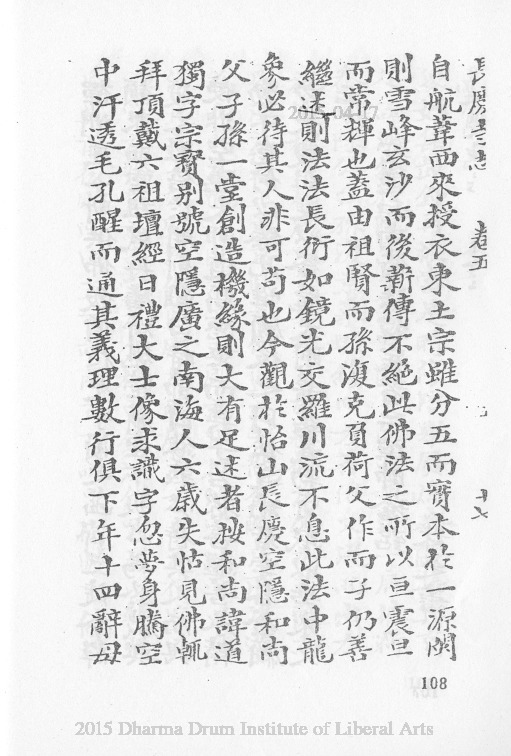 長慶寺志 卷五 十七
自航葦西來授衣東土宗雖分五而實本於一源閩
則雪峰玄沙而後薪傳不絕此佛法之所以亘震旦
而常輝也蓋由祖賢而孫復克負荷父作而子仍善
繼述則法法長衍如鏡光交羅川流不息此法中龍
象必待其人非可苟也今觀於怡山長慶空隱和尚
父子孫一堂創造機緣則大有足述者按和尚諱道
獨字宗寶別號空隱廣之南海人六歲失怙見佛輒
拜頂戴六祖壇經日禮大士像求識字忽夢身騰空
中汗透毛孔醒而通其義理數行俱下年十四辭母
108
2015/04/17
2015 Dharma Drum Institute of Liberal Arts